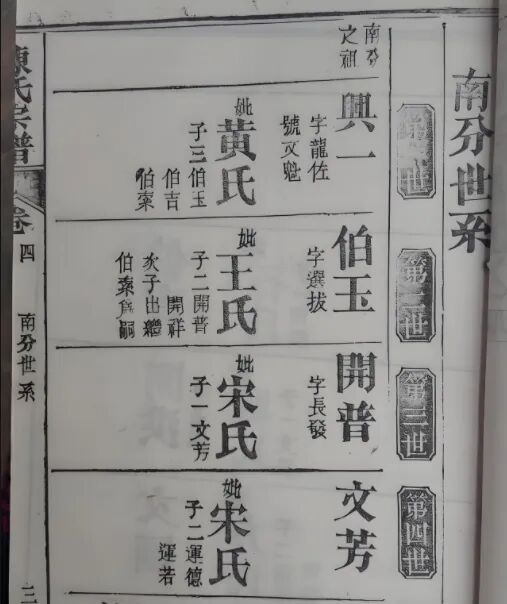 南分世系
世
第二世
第三世
第四世
南分
之祖
興一
字龍佐
號文魁
妣黃氏
子三伯玉
伯吉
伯索
伯玉
字選拔
妣王氏
子二開普
開祥
次子出繼
伯索爲嗣
開普
字長發
妣宋氏
子一文芳
文芳
妣宋氏
子二運德
運若
陳氏宗譜
卷四
南分世系
三